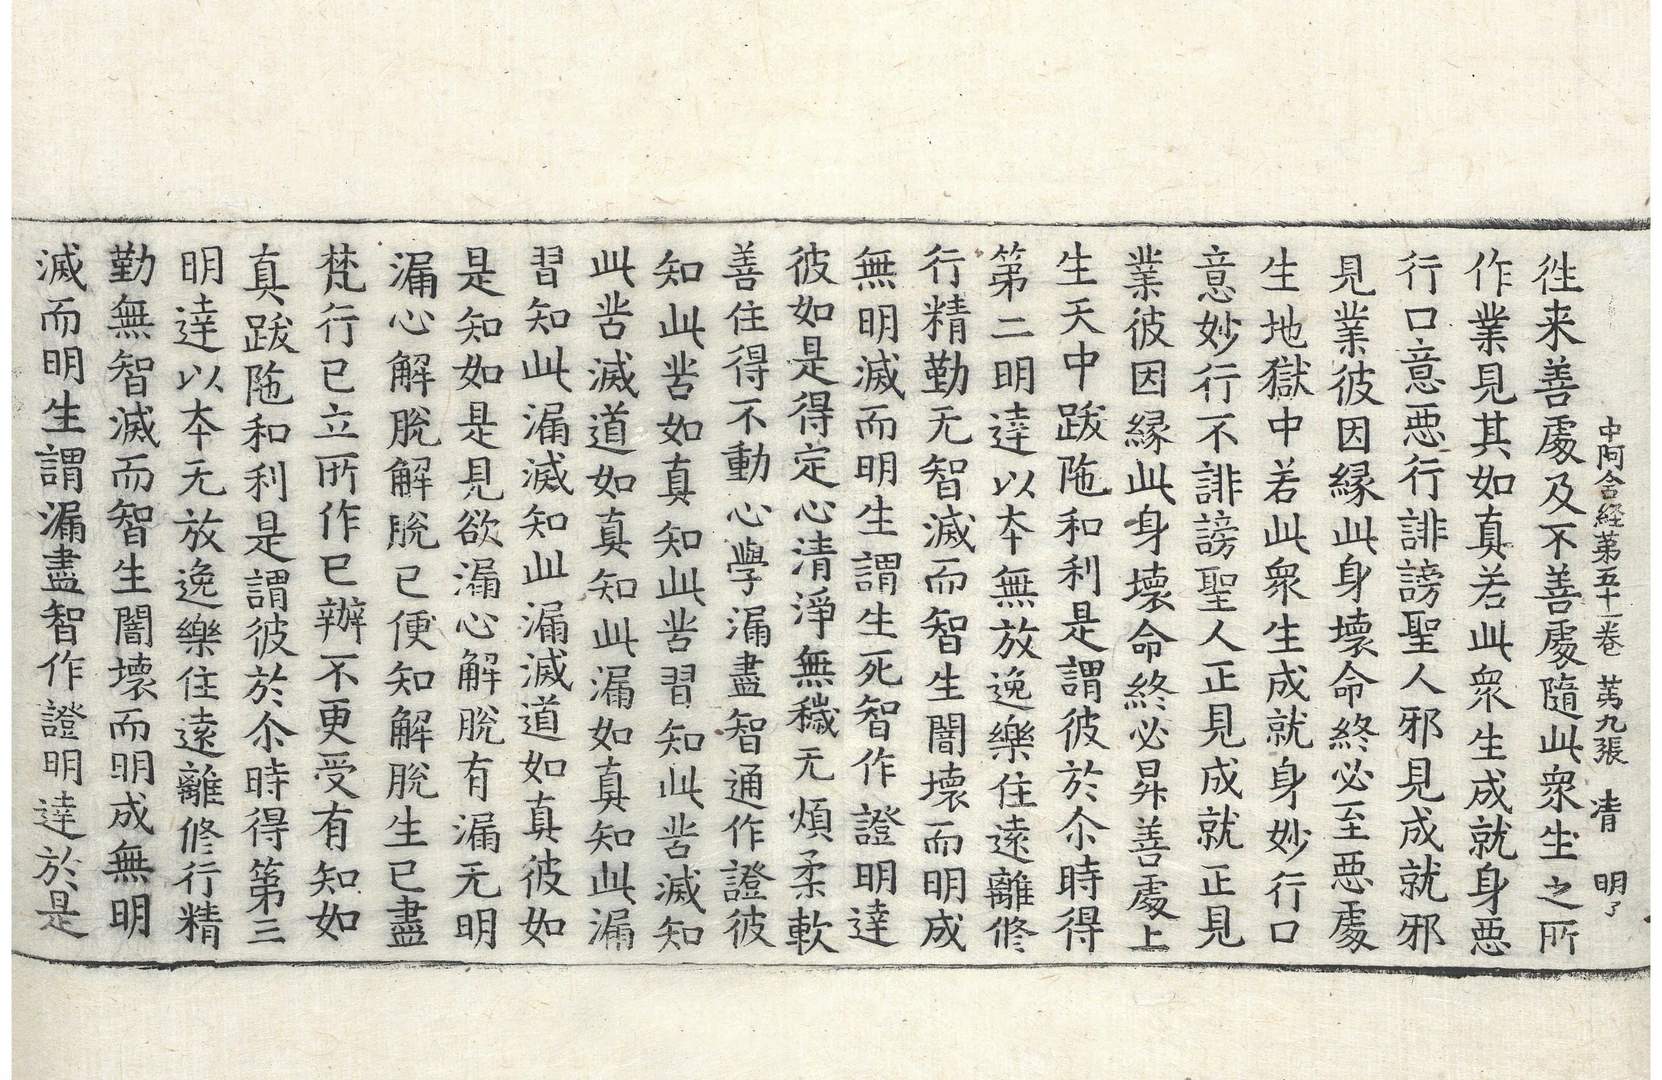 中阿含経第五十一卷 苐九張 清 明了
徃来善䖏及不善䖏隨此衆生之所
作業見其如真若此衆生成就身惡
行口意惡行誹謗聖人邪見成就邪
見業彼因緣此身壞命終必至惡䖏
生地獄中若此衆生成就身妙行口
意妙行不誹謗聖人正見成就正見
業彼因緣此身壞命終必昇善䖏上
生天中跋陁和利是謂彼於尒時得
第二明逹以本無放逸樂住遠離修
行精勤无智滅而智生闇壞而明成
無明滅而明生謂生死智作證明逹
彼如是得定心清淨無穢无煩柔軟
善住得不動心學漏盡智通作證彼
知此苦如真知此苦習知此苦滅知
此苦滅道如真知此漏如真知此漏
習知此漏滅知此漏滅道如真彼如
是知如是見欲漏心解脫有漏无明
漏心解脫解脫已便知解脫生已盡
梵行已立所作已辦不更受有知如
真跋陁和利是謂彼於尒時得第三
明逹以本无放逸樂住遠離修行精
勤無智滅而智生闇壞而明成無明
滅而明生謂漏盡智作證明逹於是